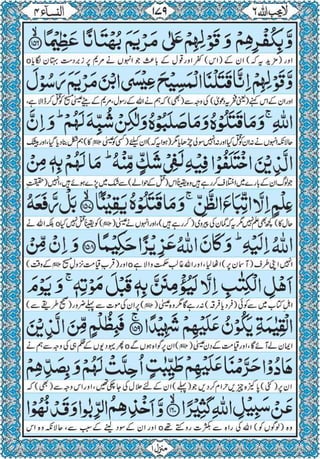 لا یحب اللہ ٦
١٧٩
النساء ٤
وَّبِكُفْرِهِمْ وَقَوْلِهِمْ عَلٰى مَرْيَمَ بُهْتَانًا عَظِيْمًا ۙ﴿۱۵۶﴾
اور (مزید یہ کہ) ان کے (اس) کفر اور قول کے باعث جو انہوں نے مریم پر زبردست بہتان لگایا o
وَّقَوْلِهِمْ اِنَّا قَتَلْنَا الْمَسِيْحَ عِيْسَى ابْنَ مَرْيَمَ رَسُوْلَ
اور ان کے اس کہنے (یعنی فخریہ دعویٰ) کی وجہ سے (بھی) کہ ہم نے اللہ کے رسول، مریم کے بیٹے عیسیٰ مسیح کو قتل کر ڈالا ہے،
اللّٰهِ ۚ وَمَا قَتَلُوْهُ وَمَا صَلَبُوْهُ وَلٰكِنْ شُبِّهَ لَهُمْ ؕ وَاِنَّ
حالانکہ انہوں نے نہ ان کو قتل کیا اور نہ انہیں سولی چڑھایا مگر (ہوا یہ کہ) ان کیلئے
الَّذِيْنَ اخْتَلَفُوْا فِيْهِ لَفِيْ شَكٍّ مِّنْهُ ؕ مَا لَهُمْ بِهٖ مِنْ
جو لوگ ان کے بارے میں اختلاف کر رہے ہیں وہ یقیناً اس (قتل کے حوالے) سے شک میں پڑے ہوئے ہیں، انہیں (حقیقت
عِلْمٍ اِلَّا اتِّبَاعَ الظَّنِّ ۚ وَمَا قَتَلُوْهُ يَقِيْنًۢا ۙ﴿۱۵۷﴾ بَلْ رَّفَعَهُ
حال کا) کچھ بھی علم نہیں مگر یہ کہ گمان کی پیروی (کر رہے ہیں)، اور انہوں نے عیسیٰ (علیہ السلام) کو یقیناً قتل نہیں کیا o بلکہ اللہ نے
اللّٰهُ اِلَيْهِ ؕ وَكَانَ اللّٰهُ عَزِيْزًا حَكِيْمًا ﴿۱۵۸﴾ وَاِنْ مِّنْ
انہیں اپنی طرف (آسمان پر) اٹھا لیا، اور اللہ غالب حکمت والا ہے o اور (قرب قیامت نزولِ مسیح کے وقت)
اَهْلِ الْكِتٰبِ اِلَّا لَيُؤْمِنَنَّ بِهٖ قَبْلَ مَوْتِهٖ ۚ وَيَوْمَ
اہل کتاب میں سے کوئی (فرد یا فرقہ) نہ رہے گا مگر وہ عیسیٰ پر ان کی موت سے پہلے ضرور (صحیح طریقے سے)
الْقِيٰمَةِ يَكُوْنُ عَلَيْهِمْ شَهِيْدًا ۚ﴿۱۵۹﴾ فَبِظُلْمٍ مِّنَ الَّذِيْنَ
ایمان لے آئے گا، اور قیامت کے دن عیسیٰ ان پر گواہ ہوں گے o پھر یہودیوں کے ظلم ہی کی وجہ سے ہم نے
هَادُوْا حَرَّمْنَا عَلَيْهِمْ طَيِّبٰتٍ اُحِلَّتْ لَهُمْ وَبِصَدِّهِمْ
ان پر (کئی) پاکیزہ چیزیں حرام کر دیں جو (پہلے) ان کے لئے حلال کی جا چکی تھیں، اور اس وجہ سے (بھی) کہ
عَنْ سَبِيْلِ اللّٰهِ كَثِيْرًا ۙ﴿۱۶۰﴾ وَّاَخْذِهِمُ الرِّبٰوا وَقَدْ نُهُوْا
وہ (لوگوں کو) اللہ کی راہ سے بکثرت روکتے تھے o اور ان کے سود لینے کے سبب سے، حالانکہ وہ اس
منزل ١